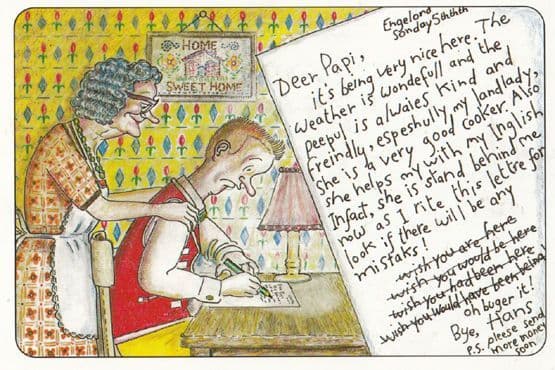 HOME
SWEET HOME
Engelond
Sonday 5thhthh
Deer Papi,
it's being very nice here. The
weather is wondefull and the
peepul is alwaies kind and
freindly, espeshully my landlady,
She is a very good cooker. Also
she helps my with my Inglish
Infact, she is stand behind me
now as I rite this lettre for
look if there will be any
mistaks!
wish you are here
wish you would be here
wish you had been here
wish you would have been being
oh buger it!
Bye, Hans
P.S. pleese send
more money
soon